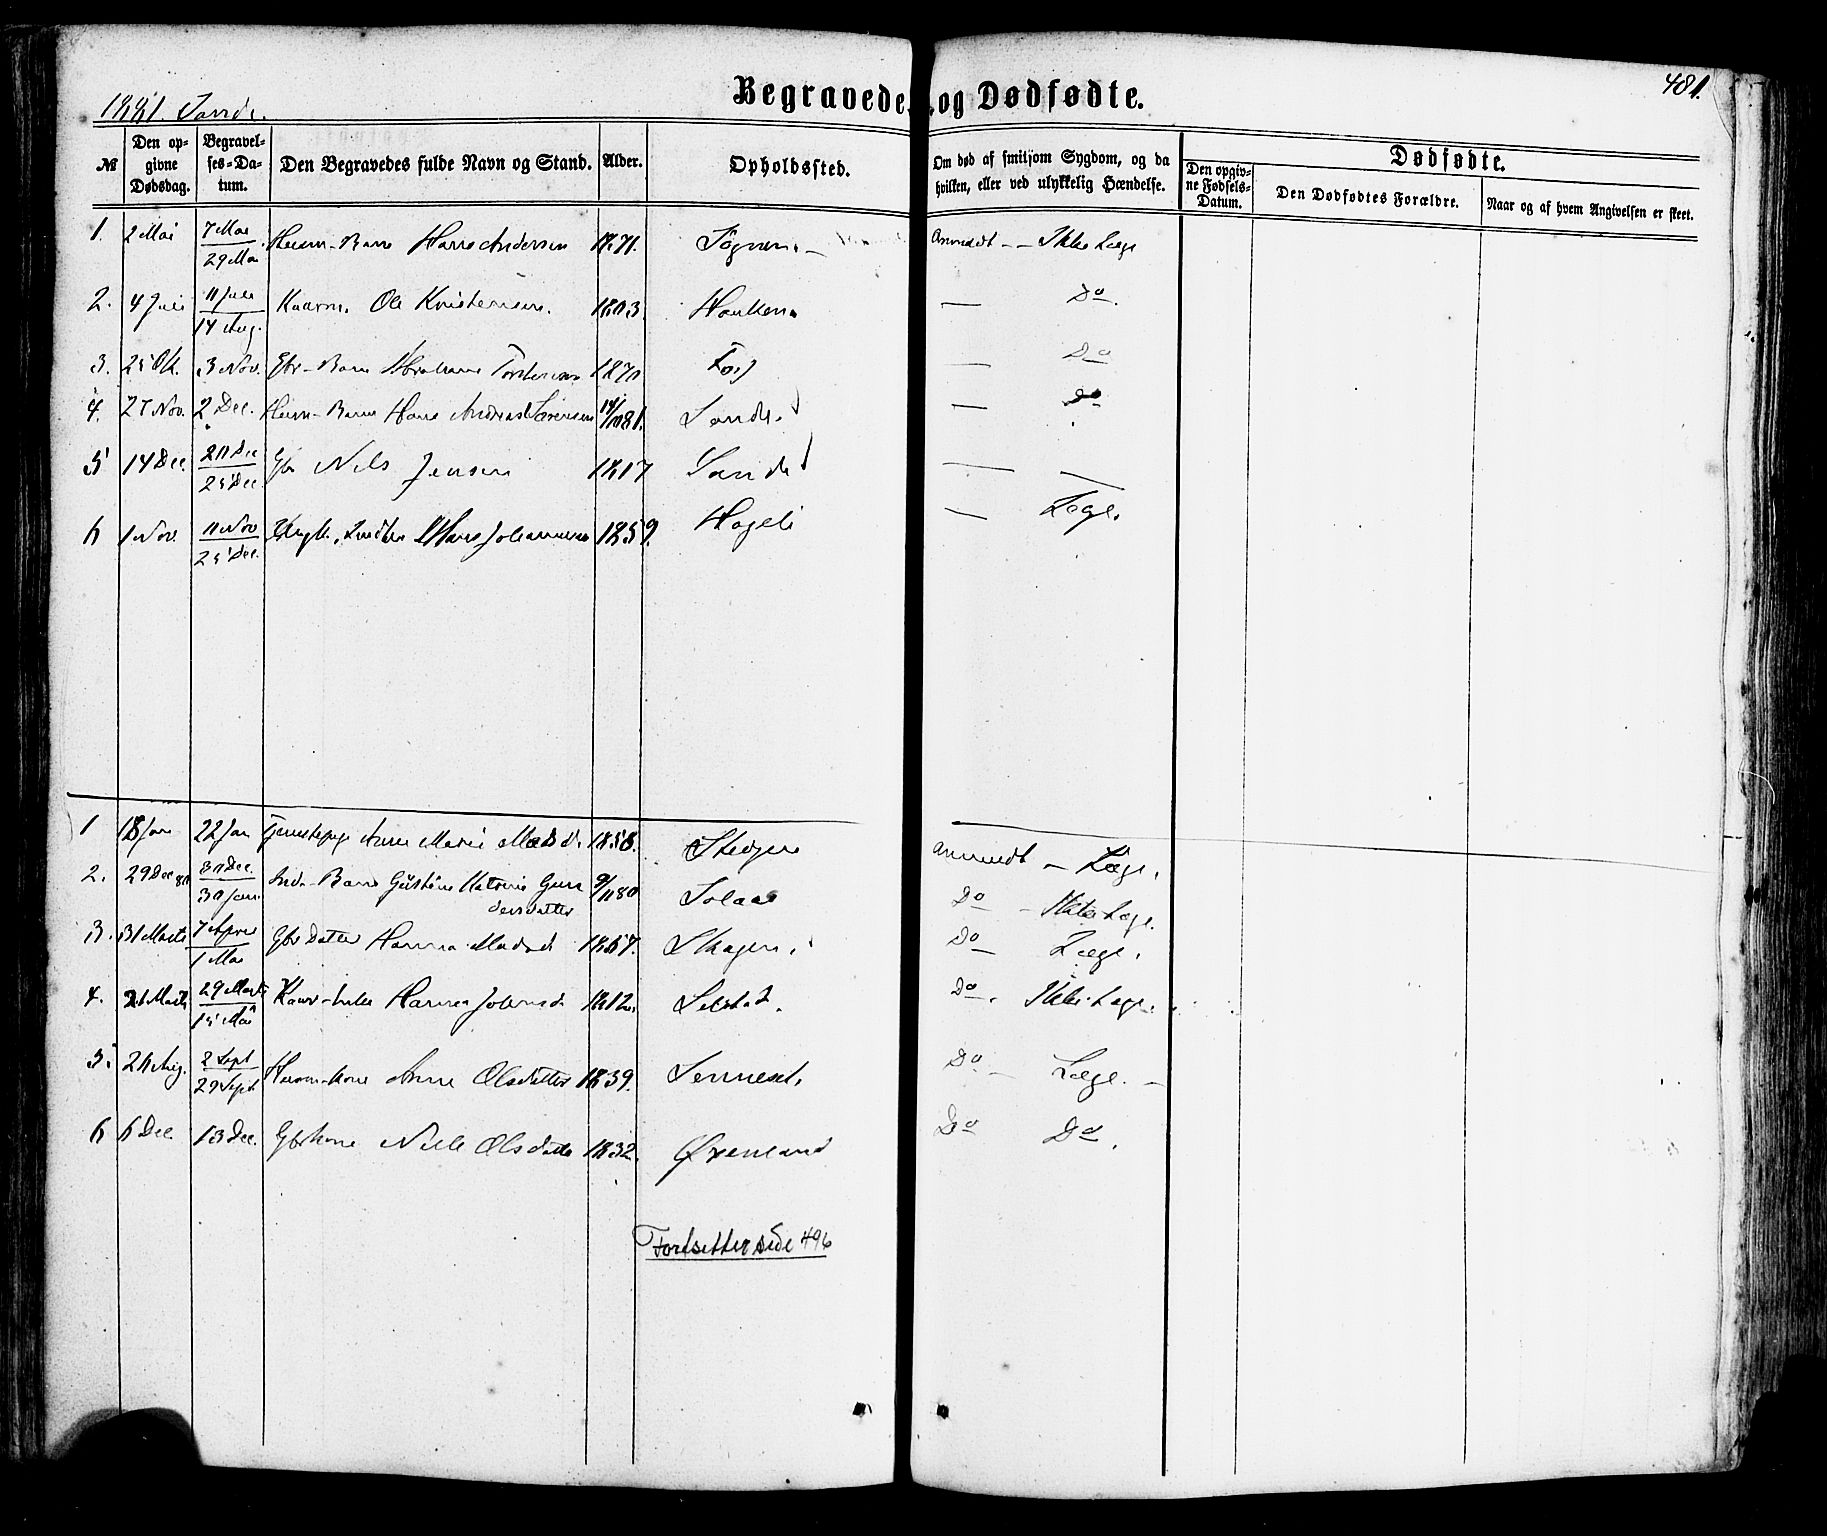 1881. Sande.
Begravede og Dødfødte.
481.
№
Den opgivne Dødsdag.
Begravelses-Datum.
Den Begravedes fulde Navn og Stand.
Alder.
Opholdssted.
Om død af smitsom Sygdom, og da hvilken, eller ved ulykkelig Hændelse.
Dødfødte.
Den opgivne Fødsels-Datum.
Den Dødfødtes Forældre.
Naar og af hvem Angivelsen er skeet.
1. 2 Mai 7 Mai 29 Mai Barn Hans Andersen 1871. Anmeldt - Ikke Læge
2. 4 Juli 11 Juli 14 Aug. Ole Kristensen. 1803. — Do.
3. 25 Ok. 3 Nov. Gbr-Barn 1870 — Do
4. 27 Nov. 2 Dec. Barn Hans Andreas Sørensen 81. Sande. — Do
5 14 Dec. 20 Dec 25 Dec. Gbr Nils Jensen 1817 Sande — —
6 1 Nov. 11 Nov 25 Dec. Hans Johannesen 1859. Hageli — Læge.
1 18 Jan 22 Jan Anne Marie Madsd. 1858. Anmeldt - Læge.
2. 29 Dec 80 30 Dec. 30 Jan. Barn Gundersdatter 80 Solaas Do - Ikke Læge.
3. 31 Marts 7 April 1 Mai Gbr Datter Hanna Madsd 1867. Skagen. Do — Læge.
4. 21 Marts 29 Marts 15 Mai Hanna Johnsd 1812. Selstad. Do. Ikke Læge.
5. 26 Aug. 2 Sept 29 Sept Anne Olsdatter 1839. Senneset. Do — Læge. —
6 6 Dec. 13 Dec. Gbrkone Olsdatter 1832. Øvenland Do Do.
Fortsetter side 496